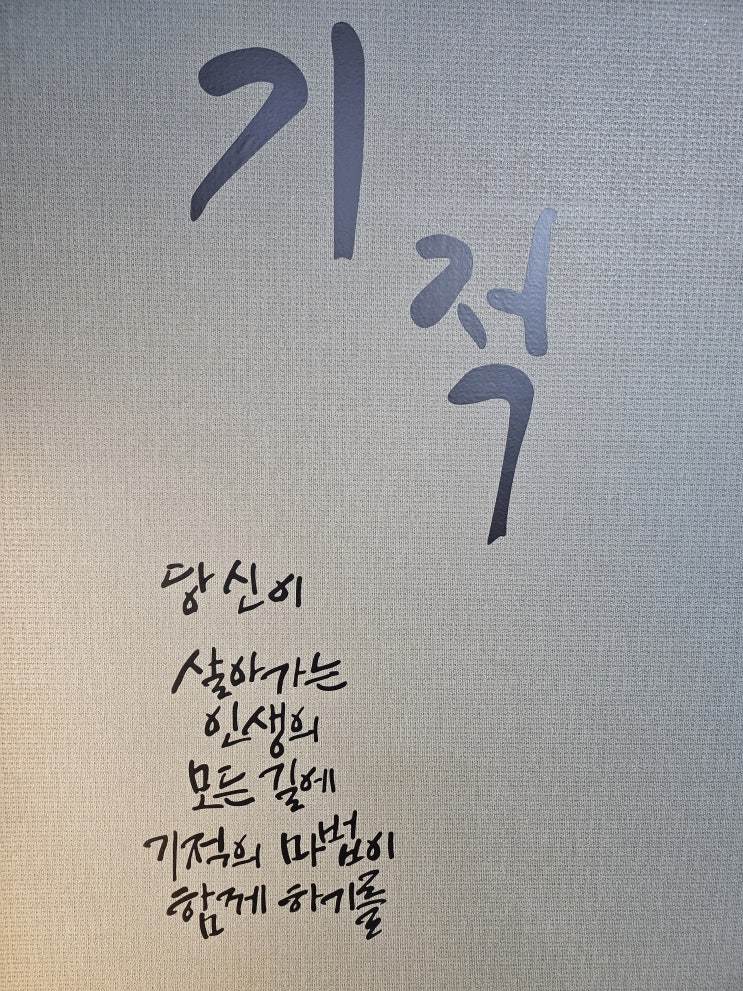 기
적
당신이
살아가는
인생의
모든 길에
기적의 마법이
함께 하기를